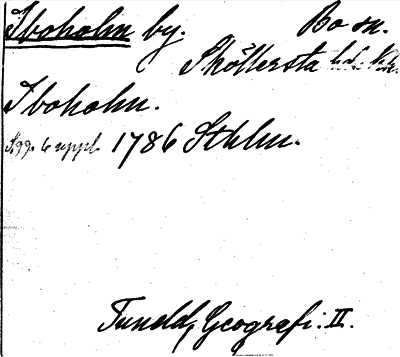 Iboholm by. Bo sn.
Sköllersta hd.
Iboholm.
S. 99. 6 uppl. 1786 Sthlm.
Tuneld, Geografi. II.